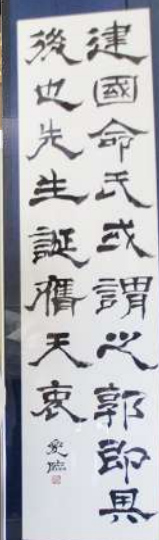 建國命氏或謂之郭即其
後也先生誕膺天衷
愛臨